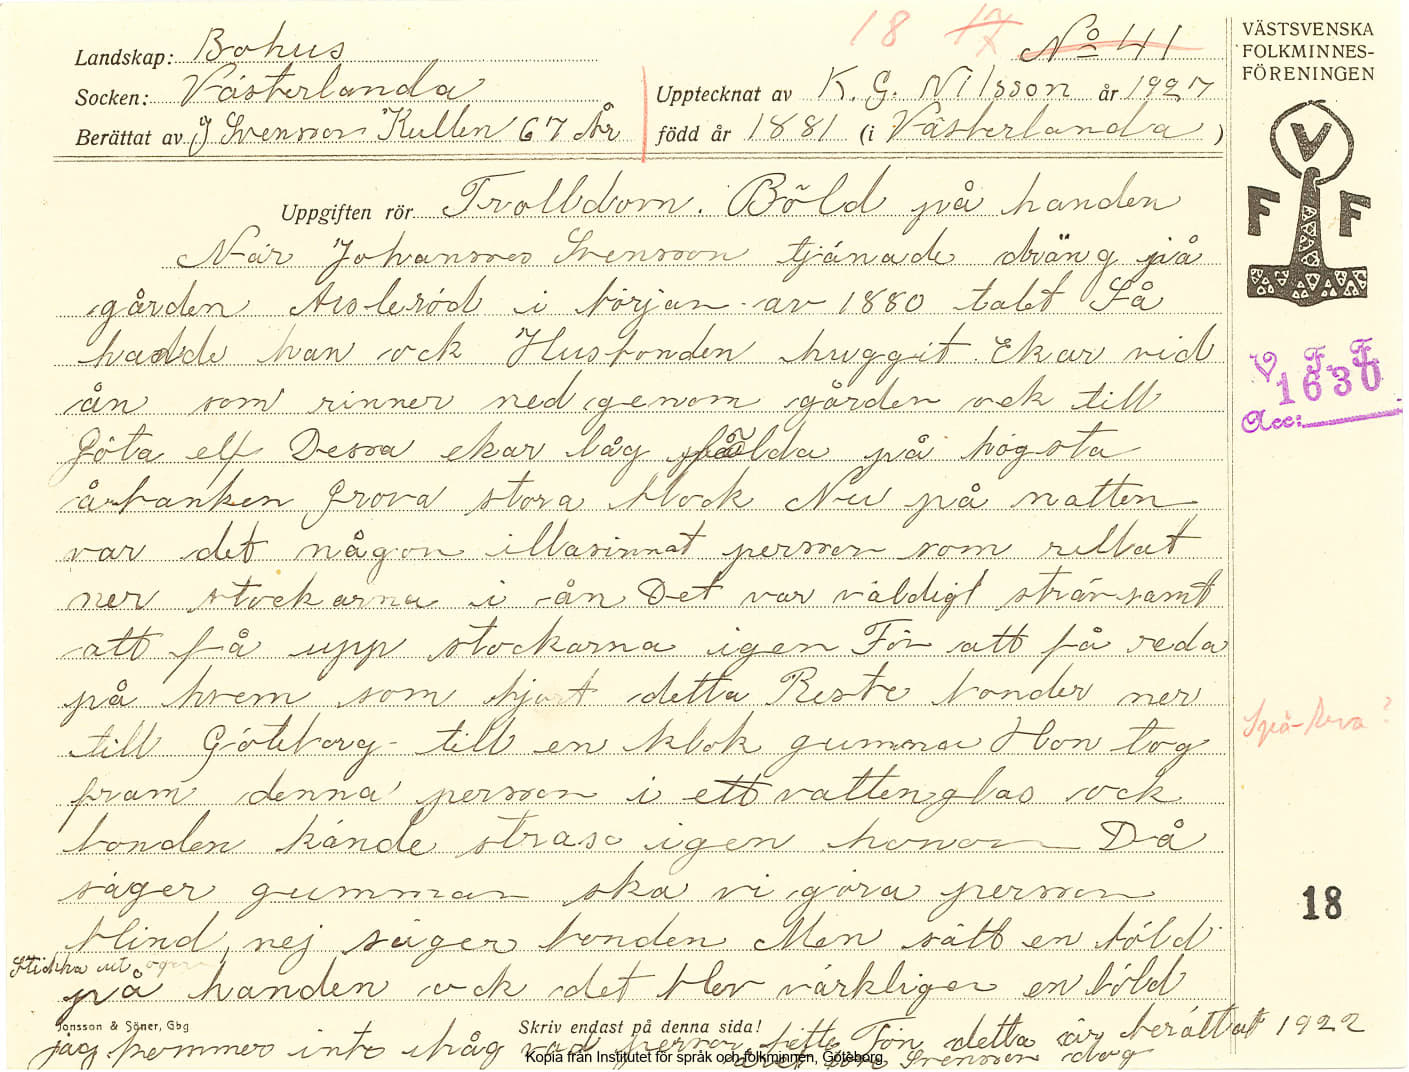 18 17 No 41
Landskap: Bohus
Socken: Västerlanda
Berättat av J Svensson Kullen 67 År
Upptecknat av K. G. Nilsson år 1927
född år 1881 (i Västerlanda )
Uppgiften rör Trolldom. Böld på handen
När Johannes Svensson tjänade dräng på
gården Assleröd i början av 1880 talet Så
hadde han ock Husbonden huggit Ekar vid
ån som rinner ned genom gården ock till
Göta elf Dessa ekar låg fälda på högsta
åbanken Grova stora block Nu på natten
var det någon illasinnat person som rullat
ner stockarna i ån Det var väldigt strävsamt
att få upp stockarna igen För att få reda
på hvem som hjort detta Reste bonden ner
till Göteborg till en klok gumma Hon tog
fram denna person i ett vattenglas ock
bonden kände strax igen honom Då
säger gumman ska vi göra person
blind, nej säger bonden Men sätt en böld
Sticka ut ögon
på handen ock det blev värkligen en böld
jag kommer inte ihåg vad person hette För detta är berättat 1922
Svensson dog
Jonsson & Söner, Gbg
Skriv endast på denna sida!
Kopia från Institutet för språk och folkminnen, Göteborg
VÄSTSVENSKA
FOLKMINNES-
FÖRENINGEN
V
F F
V. F. F.
1630
Acc:
Spå-Beva?
18